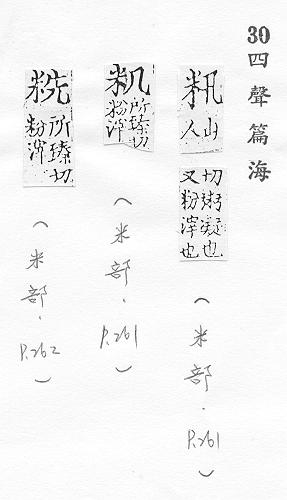 30四聲篇海
籸山人切粥凝也又粉滓也(米部．P.261)
所臻切粉滓(米部．P.261)
所臻切粉滓(米部．P.262)